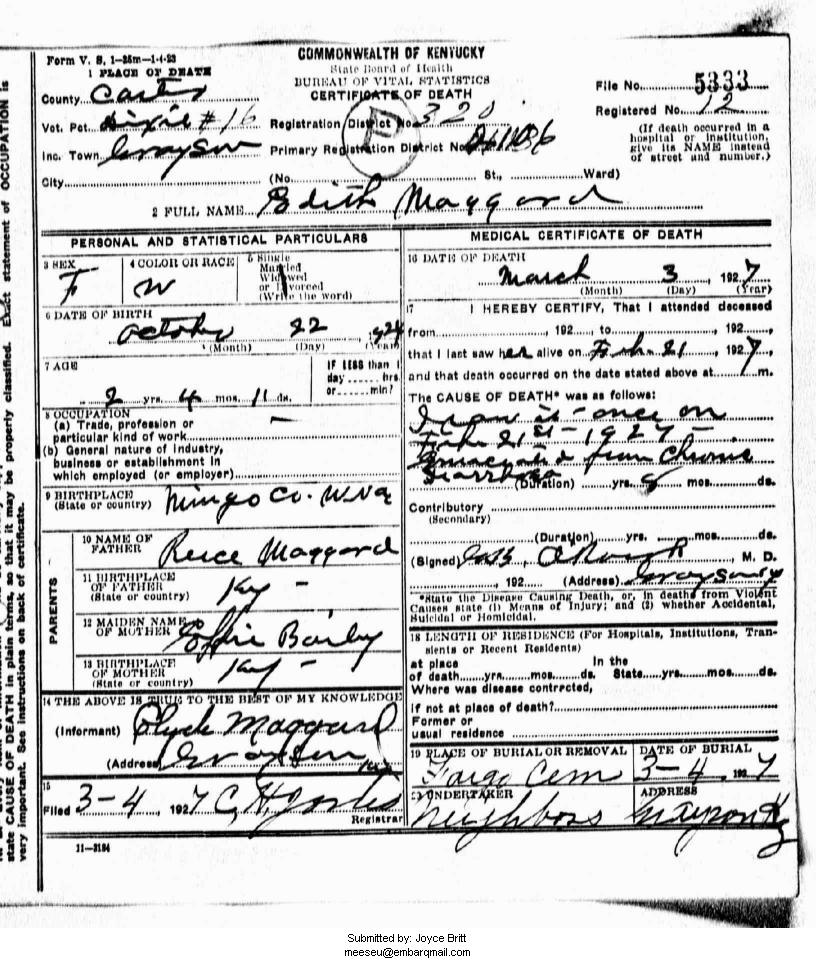 Form V. S. 1-25m-1-4-23
COMMONWEALTH OF KENTUCKY
State Board of Health
BUREAU OF VITAL STATISTICS
CERTIFICATE OF DEATH
1 PLACE OF DEATH
County Carter
Vot. Pct. Dixie #16
Inc. Town Grayson
City
Registration District No. 320
Primary Registration District No.
(No. St., Ward)
File No. 5333
Registered No. 12
(If death occurred in a
hospital or institution,
give its NAME instead
of street and number.)
2 FULL NAME Edith Maggard
PERSONAL AND STATISTICAL PARTICULARS
3 SEX
F
4 COLOR OR RACE
W
5 Single
Married
Widowed
or Divorced
(Write the word)
6 DATE OF BIRTH
October 22 1924
(Month) (Day) (Year)
7 AGE
2 yrs. 4 mos. 11 ds.
IF LESS than 1
day hrs.
or min?
8 OCCUPATION
(a) Trade, profession or
particular kind of work —
(b) General nature of industry,
business or establishment in
which employed (or employer)
9 BIRTHPLACE
(State or country) Mingo Co. W Va
PARENTS
10 NAME OF
FATHER Reece Maggard
11 BIRTHPLACE
OF FATHER
(State or country) Ky -
12 MAIDEN NAME
OF MOTHER Effie Baily
13 BIRTHPLACE
OF MOTHER
(State or country) Ky -
14 THE ABOVE IS TRUE TO THE BEST OF MY KNOWLEDGE
(Informant) Clyde Maggard
(Address) Grayson Ky
15
Filed 3-4, 1927 C. H.
Registrar
11-3184
MEDICAL CERTIFICATE OF DEATH
16 DATE OF DEATH
March 3, 1927
(Month) (Day) (Year)
17 I HEREBY CERTIFY, That I attended deceased
from , 192 , to , 192 ,
that I last saw her alive on Feb. 21, 1927,
and that death occurred on the date stated above at m.
The CAUSE OF DEATH* was as follows:
I saw it - once on
Feb 21st - 1927 -
Emaciated from Chronic
Diarrhoea
(Duration) yrs. 8 mos. ds.
Contributory
(Secondary)
(Duration) yrs. mos. ds.
(Signed) , M. D.
, 192 (Address) Grayson Ky
*State the Disease Causing Death, or, in deaths from Violent
Causes state (1) Means of Injury; and (2) whether Accidental,
Suicidal or Homicidal.
18 LENGTH OF RESIDENCE (For Hospitals, Institutions, Tran-
sients or Recent Residents)
at place In the
of death yrs. mos. ds. State yrs. mos. ds.
Where was disease contrected,
if not at place of death?
Former or
usual residence
19 PLACE OF BURIAL OR REMOVAL
Fargo Cem
DATE OF BURIAL
3-4, 1927
UNDERTAKER
Neighbors
ADDRESS
Grayson Ky
state CAUSE OF DEATH in plain terms, so that it may be properly classified. Exact statement of OCCUPATION is
very important. See instructions on back of certificate.
Submitted by: Joyce Britt
meeseu@embarqmail.com